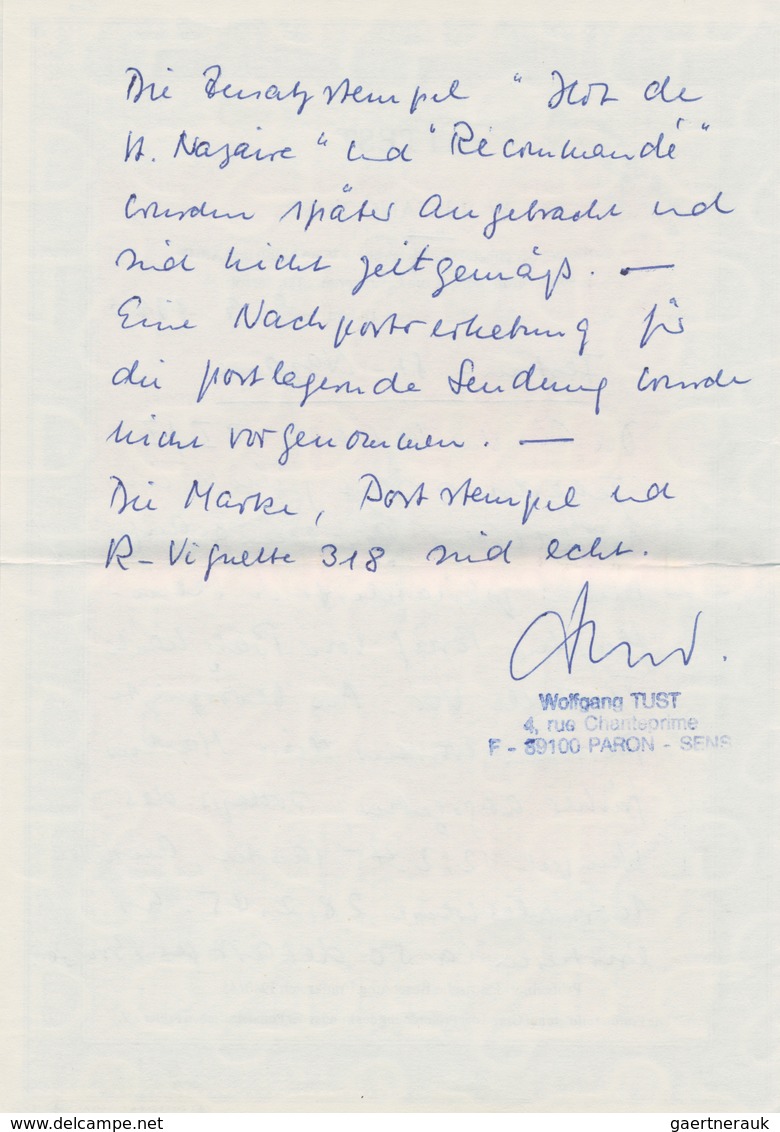 Die Zusatzstempel "Ilot de
St. Nazaire" und "Récommandé"
wurden später angebracht und
sind nicht zeitgemäß. —
Eine Nachportoerhebung für
die postlagernde Sendung wurde
nicht vorgenommen. —
Die Marke, Poststempel und
R-Vignette 318 sind echt.
Wolfgang TUST
4, rue Chanteprime
F - 89100 PARON - SENS
www.delcampe.net
gaertnerauk